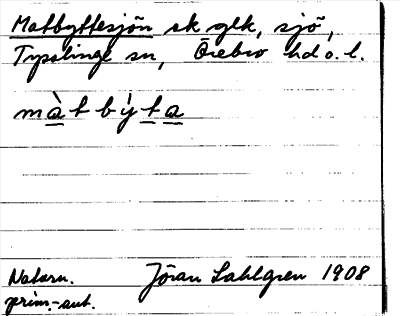 Matbyttesjön sk glk, sjö,
Tysslinge sn, Örebro hd o. l.
màtbýta
Naturn. Jöran Sahlgren 1908
prim.-aut.